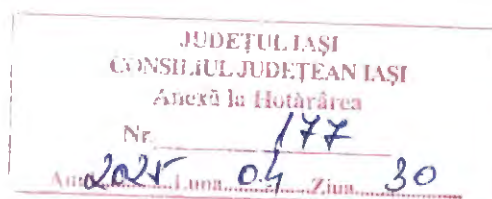 JUDEȚUL IAȘI
CONSILIUL JUDEȚEAN IAȘI
Anexă la Hotărârea
Nr. 177
Anul 2025 Luna 04 Ziua 30